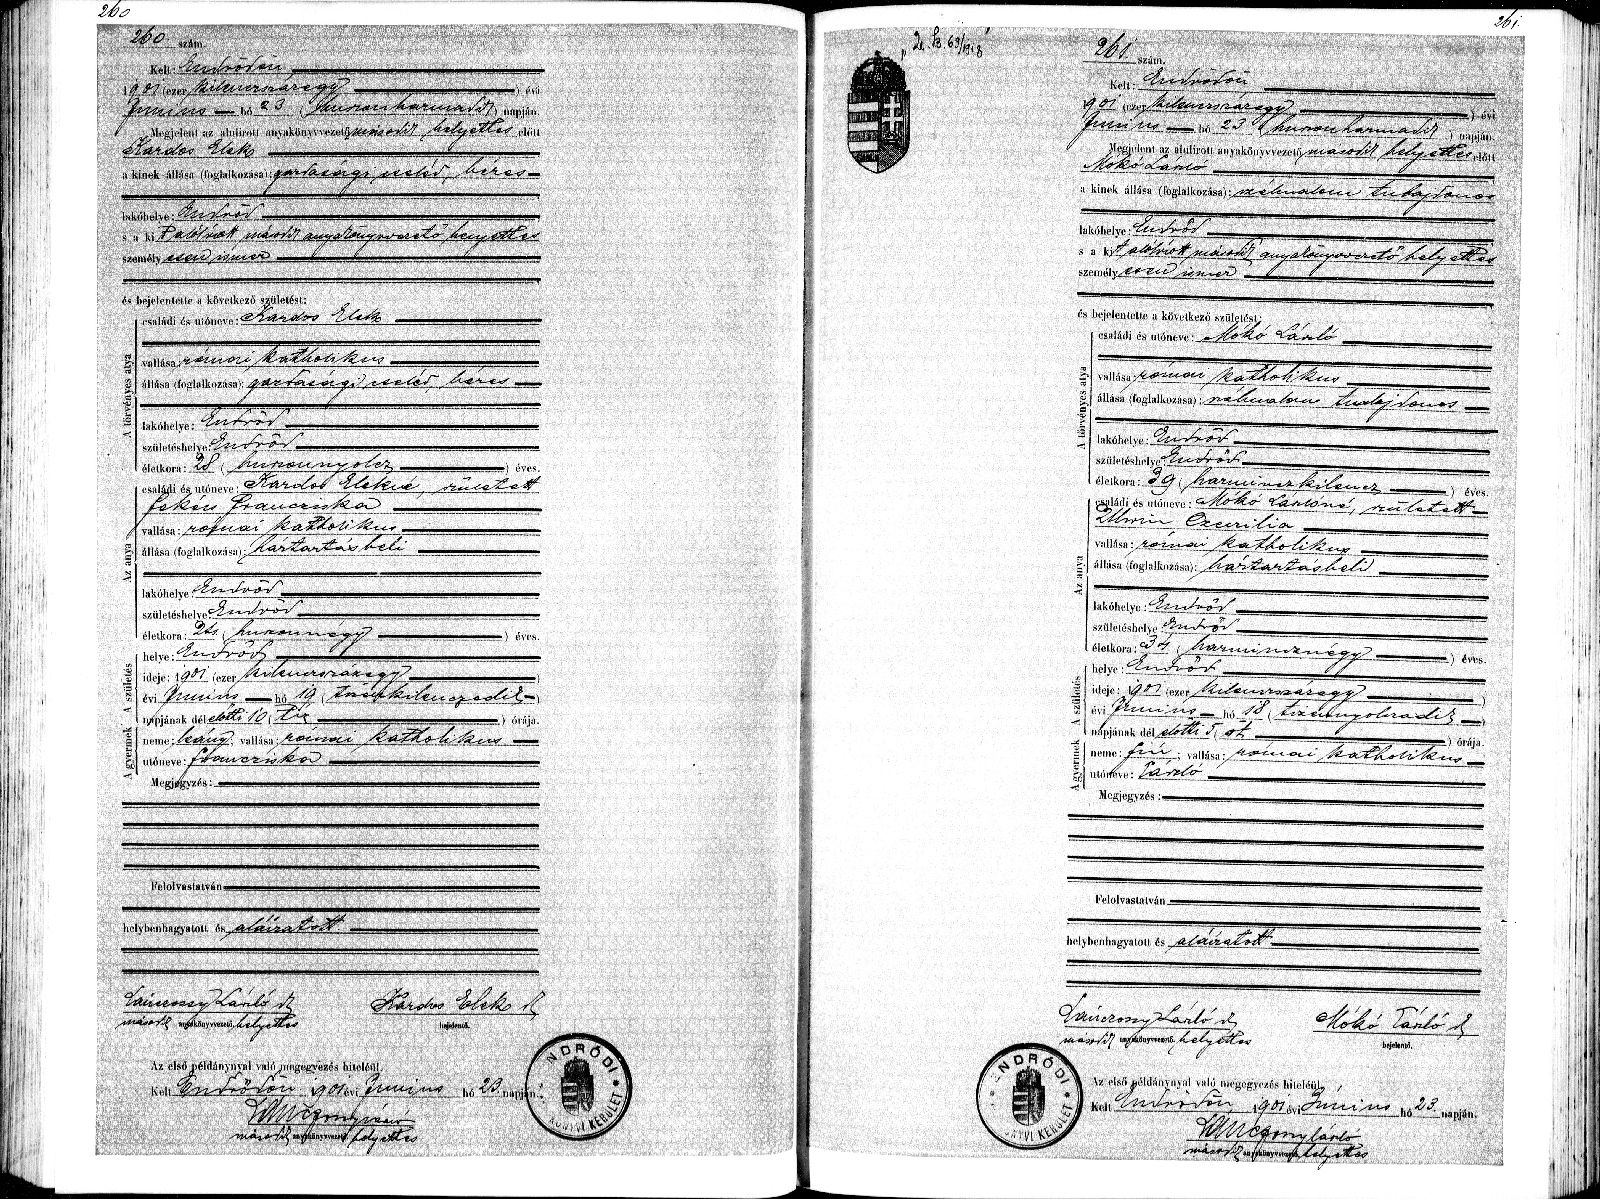 260
260 szám.
Kelt: Endrődön
1901 (ezer kilencszázegy ) évi
Junius hó 23 (huszonharmadik) napján.
Megjelent az alulirott anyakönyvvezető második helyettes előtt
Kardos Elek
a kinek állása (foglalkozása): gazdasági cseléd, béres
lakóhelye: Endrőd
s a kit alólirott második anyakönyvvezető helyettes
személyesen ismer
és bejelentette a következő születést:
A törvényes atya
családi és utóneve: Kardos Elek
vallása: római katholikus
állása (foglalkozása): gazdasági cseléd, béres
lakóhelye: Endrőd
születéshelye: Endrőd
életkora: 28 (huszonnyolcz ) éves.
Az anya
családi és utóneve: Kardos Elekné, született
Francziska
vallása: római katholikus
állása (foglalkozása): háztartásbeli
lakóhelye: Endrőd
születéshelye: Endrőd
életkora: 24 (huszonnégy ) éves.
A születés
helye: Endrőd
ideje: 1901 (ezer kilencszázegy )
évi Junius hó 19 (tizenkilenczedik )
napjának dél előtti 10 (tiz ) órája.
A gyermek
neme: leány; vallása: római katholikus
utóneve: Francziska
Megjegyzés:
Felolvastatván
helybenhagyatott és aláiratott
László
második anyakönyvvezető helyettes
Kardos Elek
bejelentő.
Az első példánynyal való megegyezés hiteléül.
Kelt Endrődön 1901 évi Junius hó 23 napján.
második anyakönyvvezető helyettes
ENDRŐDI
KÖNYVI KERÜLET
261
261 szám.
Kelt: Endrődön
1901 (ezer kilencszázegy ) évi
Junius hó 23 (huszonharmadik ) napján.
Megjelent az alulirott anyakönyvvezető második helyettes előtt
Mokó László
a kinek állása (foglalkozása): szélmalom tulajdonos
lakóhelye: Endrőd
s a kit alólirott második anyakönyvvezető helyettes
személyesen ismer
és bejelentette a következő születést:
A törvényes atya
családi és utóneve: Mokó László
vallása: római katholikus
állása (foglalkozása): szélmalom tulajdonos
lakóhelye: Endrőd
születéshelye Endrőd
életkora: 39 (harminczkilencz ) éves.
Az anya
családi és utóneve: Mokó Lászlóné, született
Czeczilia
vallása: római katholikus
állása (foglalkozása): háztartásbeli
lakóhelye: Endrőd
születéshelye Endrőd
életkora: 34 (harmincznégy ) éves.
A születés
helye: Endrőd
ideje: 1901 (ezer kilencszázegy )
évi Junius hó 18 (tizennyolczadik )
napjának dél előtti 5 (öt ) órája.
A gyermek
neme: fiú; vallása: római katholikus
utóneve: László
Megjegyzés:
Felolvastatván
helybenhagyatott és aláiratott
László
második anyakönyvvezető helyettes
Mokó László
bejelentő.
Az első példánynyal való megegyezés hiteléül.
Kelt Endrődön 1901 évi Junius hó 23 napján.
László
második anyakönyvvezető helyettes
ENDRŐDI
KÖNYVI KERÜLET